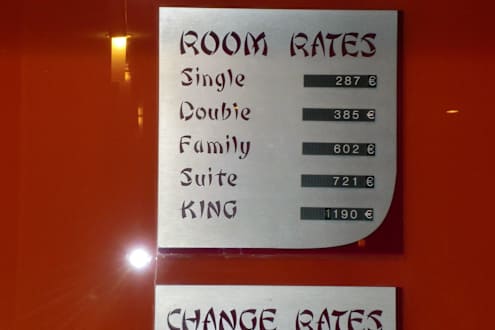 ROOM RATES
Single 287 €
Double 385 €
Family 602 €
Suite 721 €
KING 1190 €
CHANGE RATES